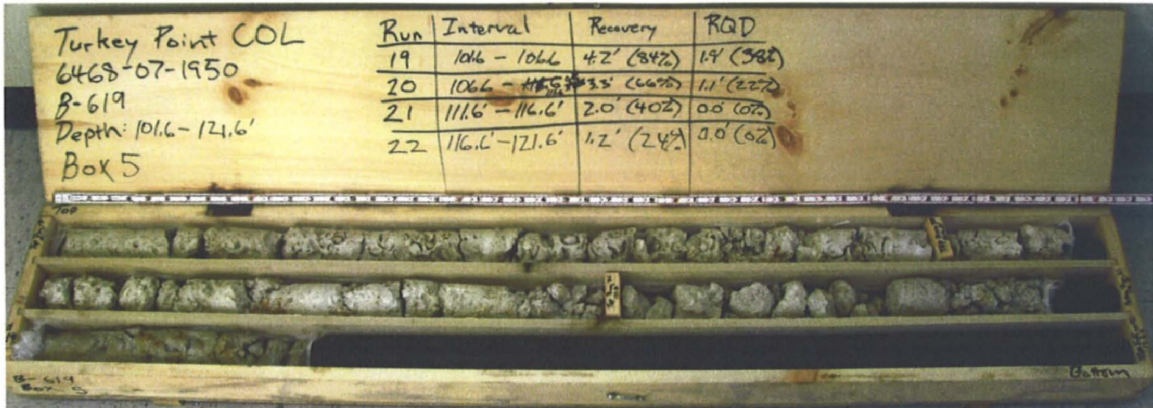 Turkey Point COL
6468-07-1950
B-619
Depth: 101.6-121.6'
Box 5
Run Interval Recovery RQD
19 101.6 - 106.6 4.2' (84%) 1.9' (38%)
20 106.6 - 3.3' (66%) 1.1' (22%)
21 111.6' - 116.6' 2.0' (40%) 0.0' (0%)
22 116.6'-121.6' 1.2' (24%) 0.0' (0%)
Top
B-619
Box 5
Bottom